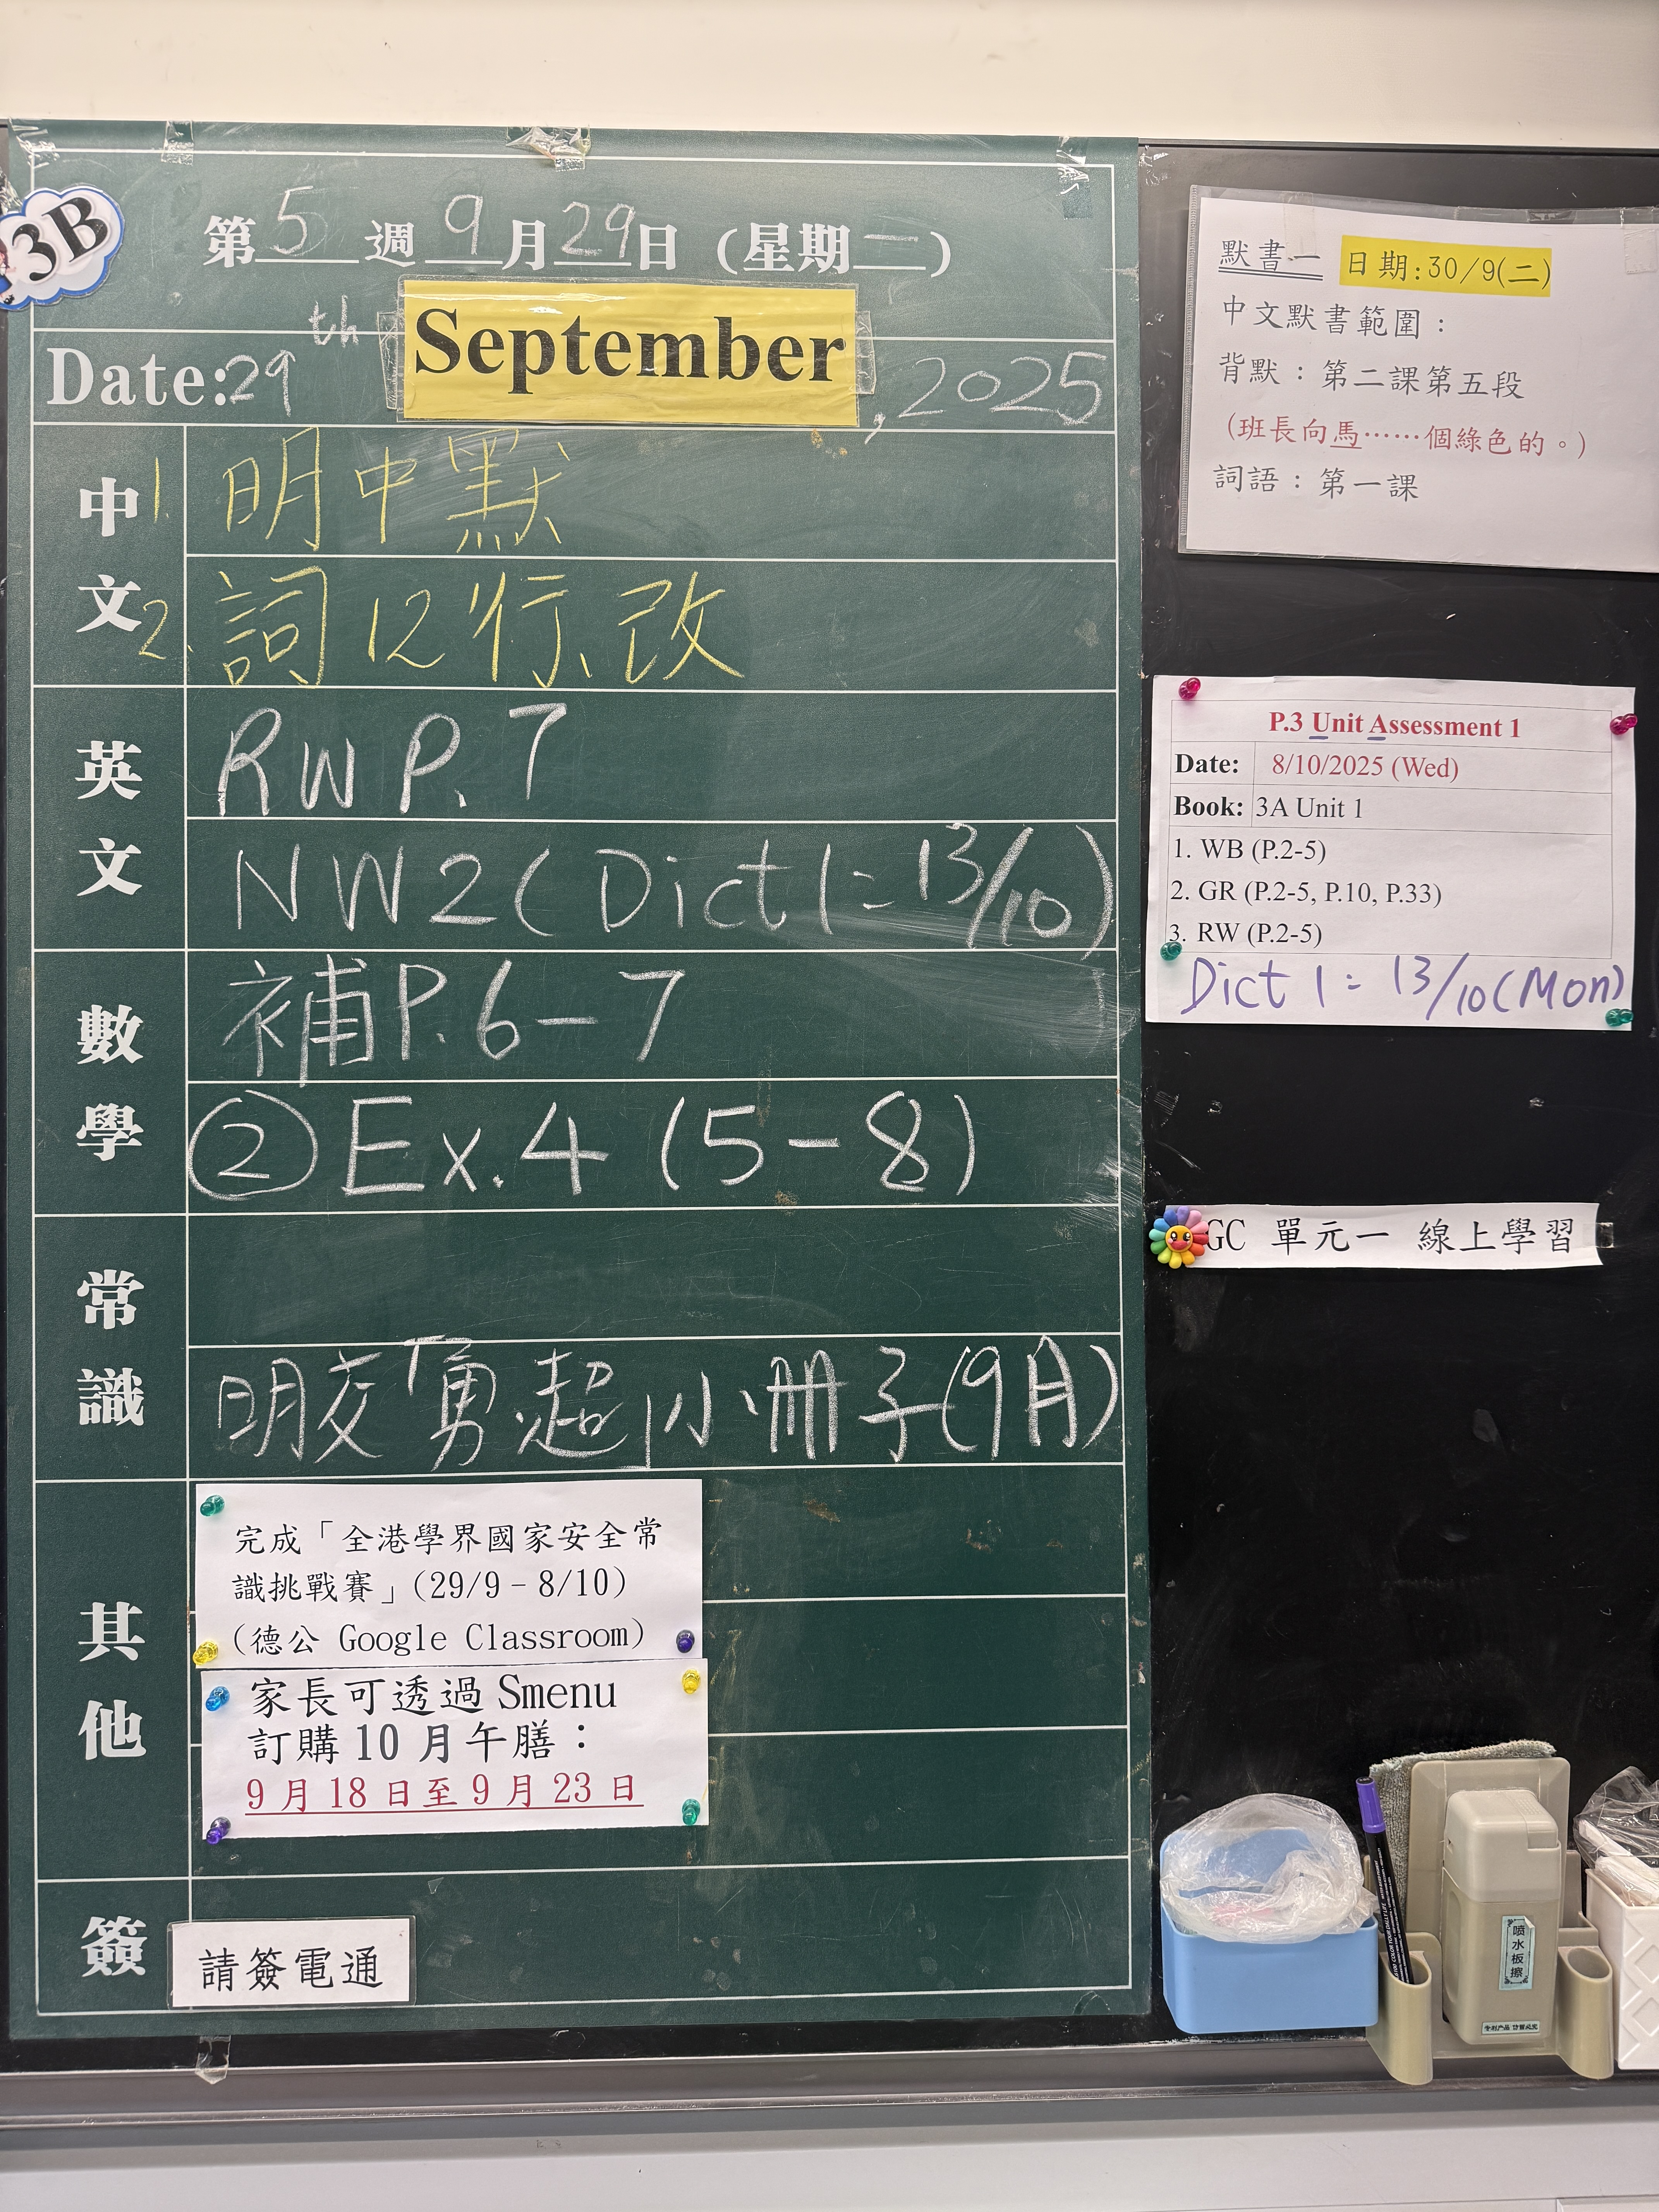 3B
第5週9月29日(星期一)
Date:29th September, 2025
中文
1.明中默
2.詞12行、改
英文
RW P.7
NW2(Dict 1: 13/10)
數學
補P.6-7
② Ex.4 (5-8)
常識
明交「勇.超」小冊子(9月)
其他
完成「全港學界國家安全常
識挑戰賽」(29/9-8/10)
(德公 Google Classroom)
家長可透過 Smenu
訂購10月午膳：
9月18日至9月23日
簽
請簽電通
默書一 日期:30/9(二)
中文默書範圍：
背默：第二課第五段
(班長向馬……個綠色的。)
詞語：第一課
P.3 Unit Assessment 1
Date: 8/10/2025 (Wed)
Book: 3A Unit 1
1. WB (P.2-5)
2. GR (P.2-5, P.10, P.33)
3. RW (P.2-5)
Dict 1: 13/10(Mon)
GC 單元一 線上學習
喷水板擦